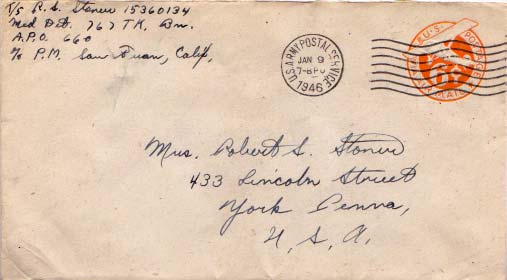 T/5 R. S. Stoner 15360134
Med Det. 767 TK. Bn.
A.P.O. 660
c/o P.M. San Fran, Calif.
U.S. ARMY POSTAL SERVICE
JAN 9
1946
U.S. POSTAGE
Mrs. Robert S. Stoner
433 Lincoln Street
York Penna,
U. S. A.